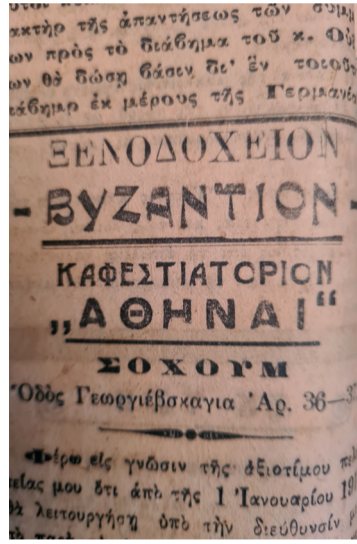 ακτὴρ τῆς ἀπαντήσεως τῶν
ων πρὸς τὸ διάβημα τοῦ κ.
ων θὰ δώσῃ βάσιν δι' ἓν
ἐκ μέρους τῆς
ΞΕΝΟΔΟΧΕΙΟΝ
- ΒΥΖΑΝΤΙΟΝ -
ΚΑΦΕΣΤΙΑΤΟΡΙΟΝ
„ΑΘΗΝΑΙ“
ΣΟΧΟΥΜ
Ὁδὸς Γεωργιέβσκαγια Ἀρ. 36—
«Φέρω εἰς γνῶσιν τῆς ἀξιοτίμου
μου ὅτι ἀπὸ τῆς 1 Ἰανουαρίου
λειτουργήσῃ ὑπὸ τὴν διεύθυνσίν